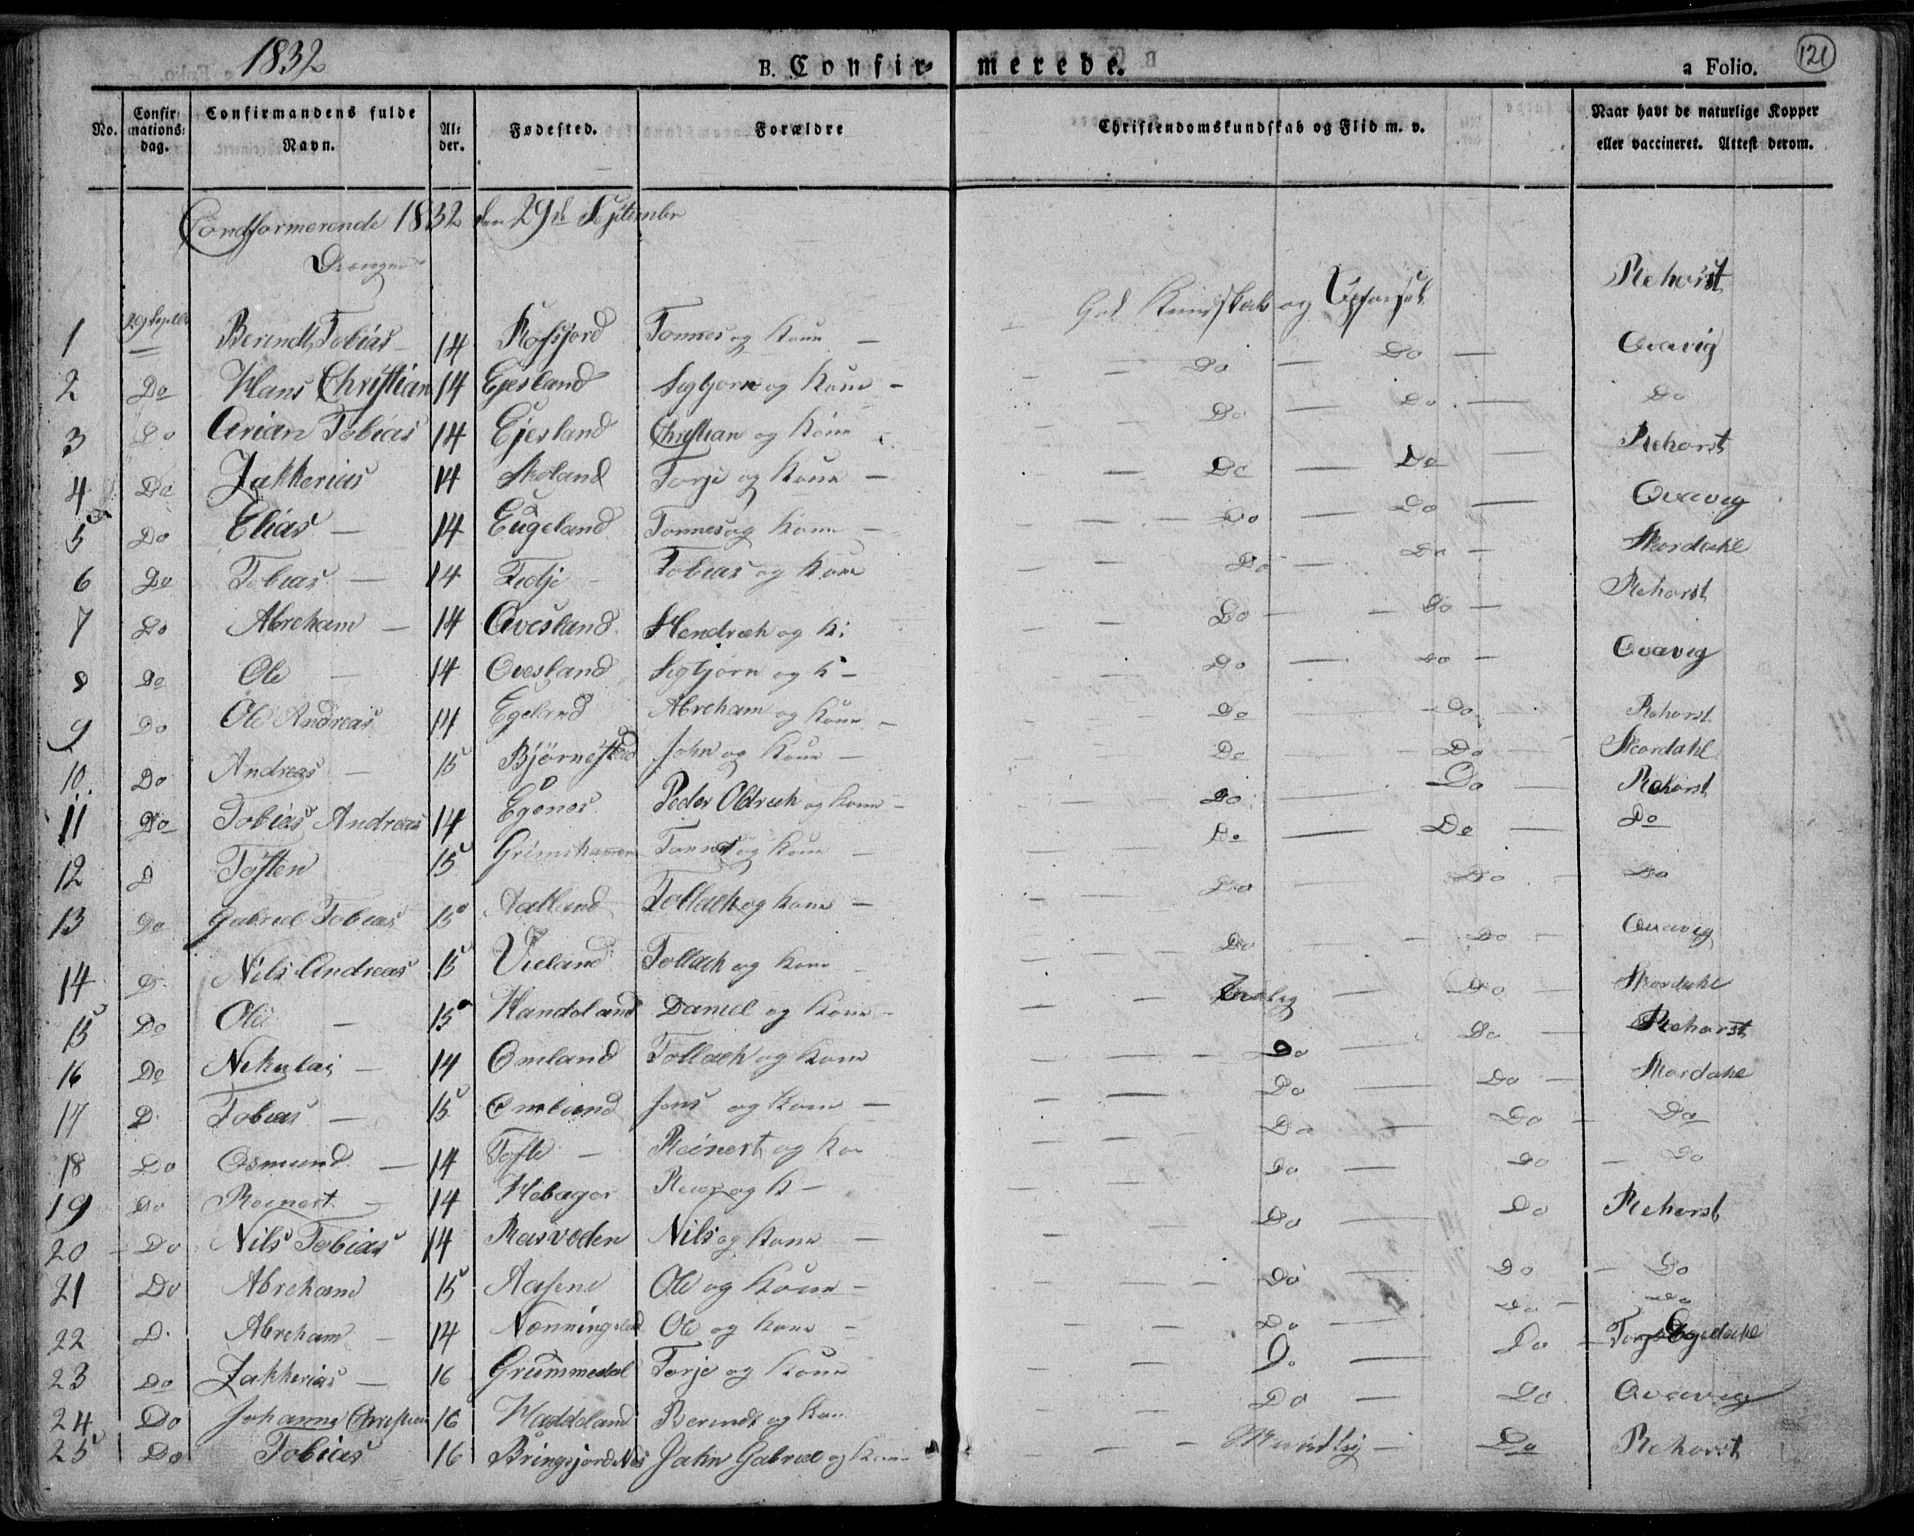 1832
B. Confir- merede.
a Folio. 121
No. Confirmations-dag. Confirmandens fulde Navn. Alder. Fødested. Forældre Christendomskundskab og Flid m. v. Naar havt de naturlige Kopper eller vaccineret. Attest derom.
Condformerende 1832 den 29de September
Drenge
1 29 Septbr Berendt Tobias 14 Rosfjord Tonnes og Kone — God Kundskab og Opførsel Rehorst
2 Do Hans Christian 14 Ejesland Segbjorn og Kone — Do — Do — Qvavig
3 Do Arian Tobias 14 Ejesland Christian og Kone Do — Do — Do
4 Do Zakkerias 14 Skoland Torje og Kone — Do — Do — Rehorst
5 Do Elias — 14 Eugeland Tonnes og Kone — Do — Do — Qvavig
6 Do Tobias — 14 Fedje Tobias og Kone Do — Do — Skordahl
7 Do Abreham — 14 Qvesland Hendrech og K: Do — Do — Rehorst
8 Do Ole — 14 Ovesland Segbjorn og K — Do — Do — Qvavig
9 Do Ole Andreas 14 Egeland Abreham og Kone — Do — Do — Rehorst
10 Do Andreas — 15 Bjørnestad John og Kone — Do — Do — Skordahl
11 Do Tobias Andreas 14 Egenes Peder Oldrich og Kone — Do — Do — Rehorst
12 D Tosten 15 Grimshammer Tonnes og Kone — Do — Do — Do
13 Do Gabriel Tobias 15 Aatland Tollach og Kone — Do — Do — Do
14 D. Nils Andreas 15 Vieland Tollach og Kone — Do — Do — Qvavig
15 Do Ole — 15 Handeland Daniel og Kone — — Do — Skordahl
16 Do Nikulai — 14 Omland Tollach og Kone Do — Do — Rehorst
17 D. Tobias — 15 Omland Jens og Kone — Do — Do — Skordahl
18 Do Osmund — 14 Tofte — Reinert og Kone Do — Do — Do
19 Do Reinert — 14 Hebager og K — Do — Do — Do
20 Do Nils Tobias 14 Rasvoden Nils og Kone — Do — Do Rehorst
21 Do Abreham 15 Aasene Ole og Kone — Do — Do — Do
22 D. Abreham — 14 Nonningsland Ole og Kone — Do — Do — Do
23 Do Zakkerias — 16 Grummedal Torje og Kone Do — Do — Torje Egedahl
24 Do Johanne Christian 16 Haddeland Berendt og Kone Do — Do Qvavig
25 Do Tobias 16 Bringsjordnes John Gabriel og Kone Maadelig — Do — Rehorst